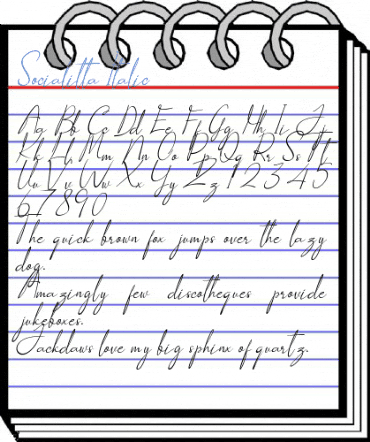 Socialitta Italic
Aa Bb Cc Dd Ee Ff Gg Hh Ii Jj
Kk Ll Mm Nn Oo Pp Qq Rr Ss Tt
Uu Vv Ww Xx Yy Zz 1 2 3 4 5
6 7 8 9 0
The quick brown fox jumps over the lazy
dog.
Amazingly few discotheques provide
jukeboxes.
Jackdaws love my big sphinx of quartz.